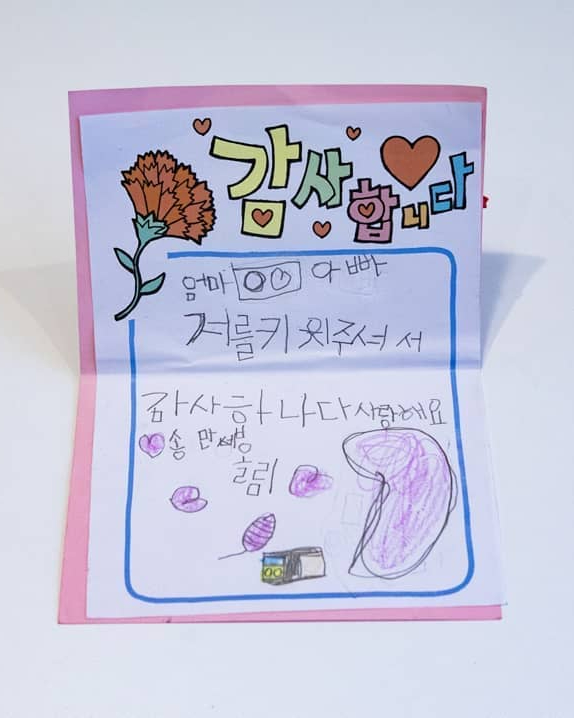 감사합니다
엄마 아빠
저를키워주셔서
감사하나다 사랑해요
송
올림